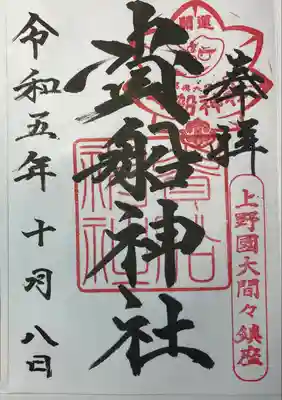 奉拝
上野國大間々鎮座
貴船神社
令和五年十月八日